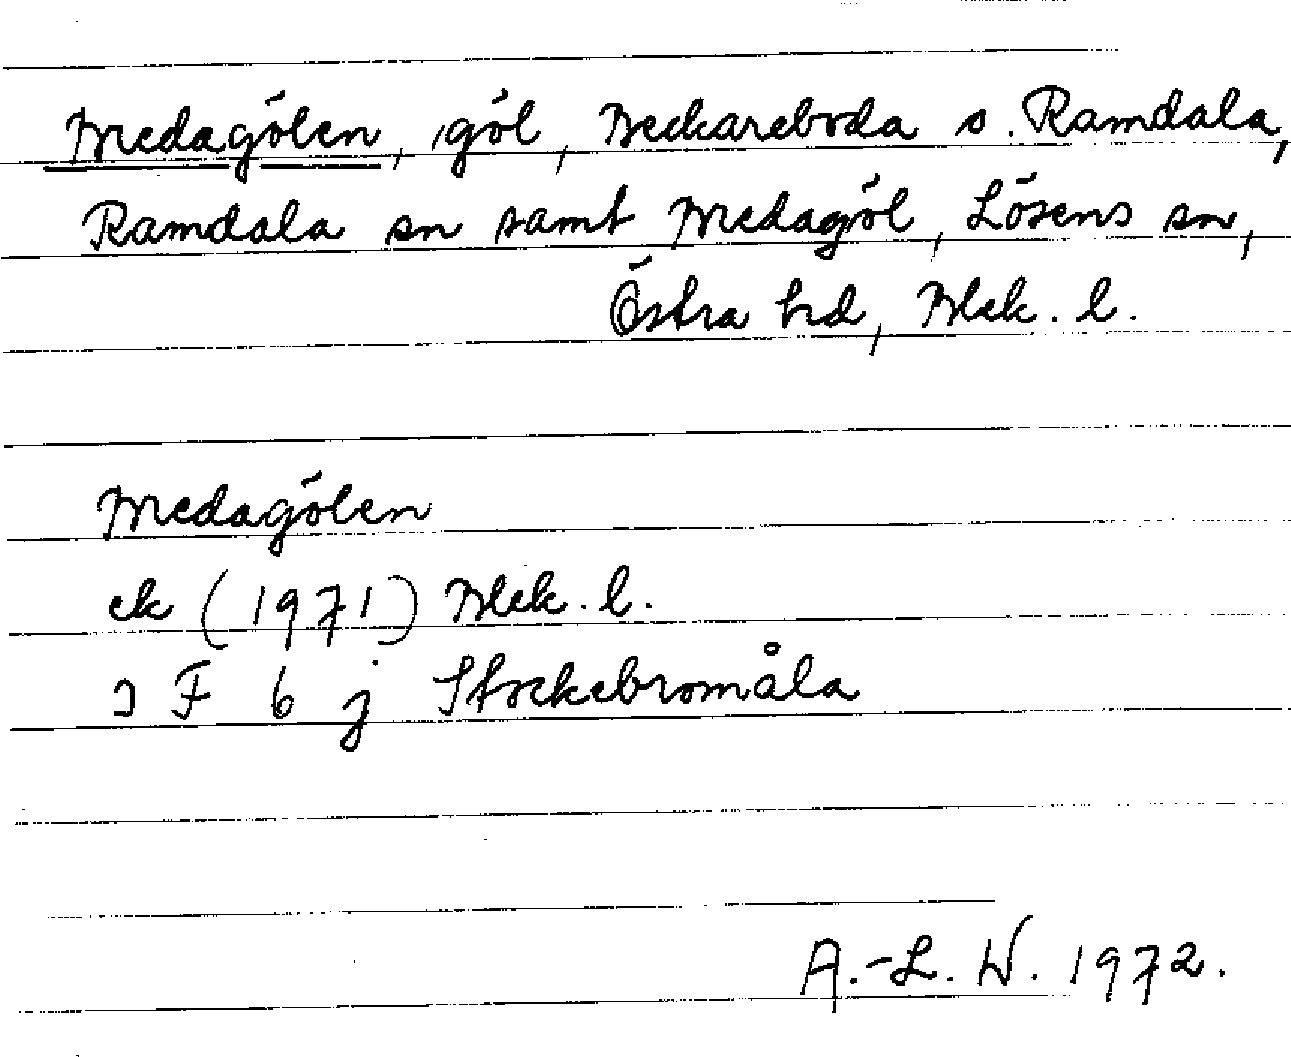 Medagölen, göl, Beckareboda s. Ramdala,
Ramdala sn samt Medagöl, Lösens sn,
Östra hd, Blek. l.
Medagölen
ek (1971) Blek. l.
3 F 6 j Stockebromåla
A.-L. W. 1972.